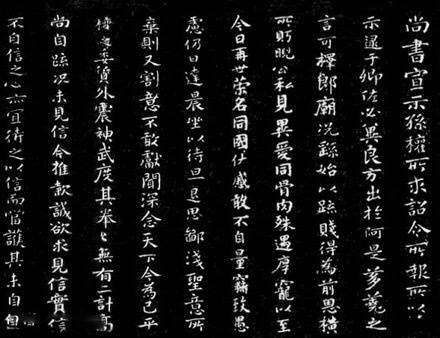 尚書宣示孫權所求詔令所報所以
示逮于卿佐必冀良方出於阿是芻蕘之
言可擇郎廟況繇始以疏賤得為前恩橫
所盱睨公私見異愛同骨肉殊遇厚寵以至
今日再世榮名同國休慼敢不自量竊致愚
慮仍日達晨坐以待旦退思鄙淺聖意所
棄則又割意不敢獻聞深念天下今為已平
權之委質外震神武度其拳〻無有二計高
尚自疏況未見信今推款誠欲求見信實
不自信之心亦宜待之以信而當護其未自